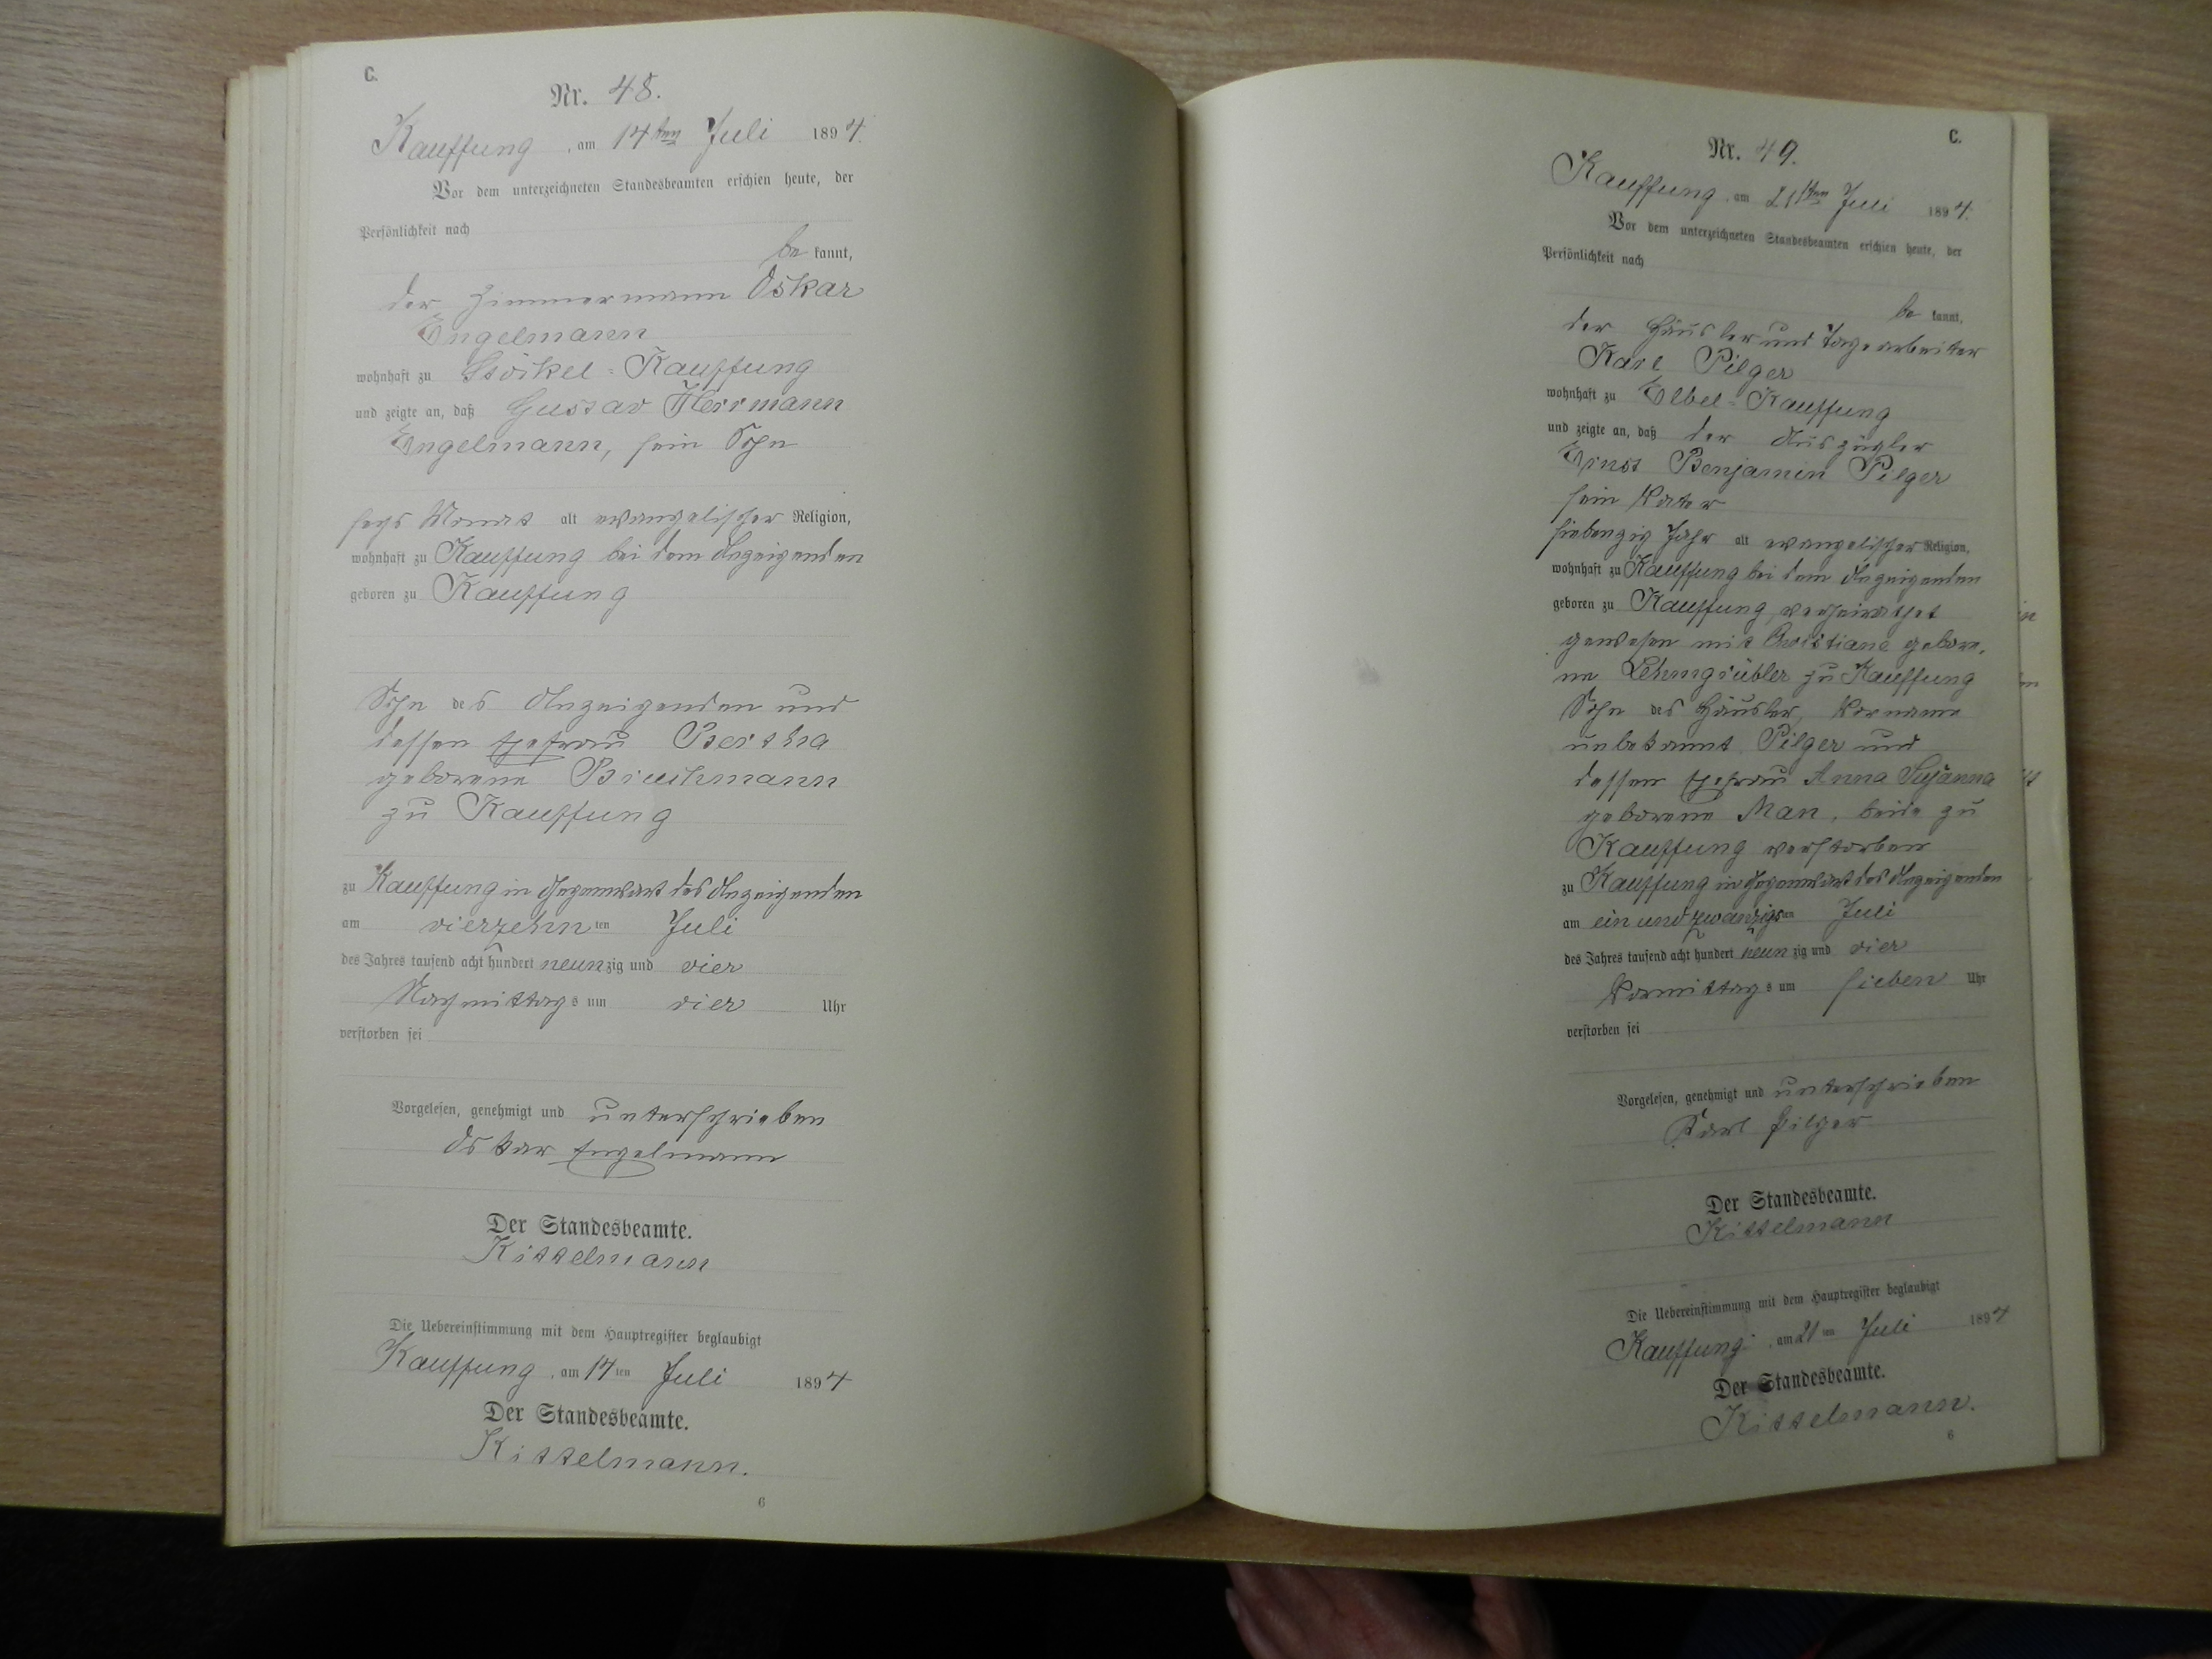 C.
Nr. 48.
Kauffung, am 14ten Juli 1894.
Vor dem unterzeichneten Standesbeamten erschien heute, der
Persönlichkeit nach
be kannt,
der Zimmermann Oskar
Engelmann
wohnhaft zu Stöckel-Kauffung
und zeigte an, daß Gustav Herrmann
Engelmann, sein Sohn
sechs Monat alt evangelischer Religion,
wohnhaft zu Kauffung bei dem Anzeigenden
geboren zu Kauffung
Sohn des Anzeigenden und
dessen Ehefrau Bertha
geborene
zu Kauffung
zu Kauffung in Gegenwart des Anzeigenden
am vierzehn ten Juli
des Jahres tausend acht hundert neunzig und vier
Nachmittags um vier Uhr
verstorben sei
Vorgelesen, genehmigt und unterschrieben
Oskar Engelmann
Der Standesbeamte.
Kittelmann
Die Uebereinstimmung mit dem Hauptregister beglaubigt
Kauffung, am 14ten Juli 1894
Der Standesbeamte.
Kittelmann.
6
C.
Nr. 49.
Kauffung, am 21ten Juli 1894.
Vor dem unterzeichneten Standesbeamten erschien heute, der
Persönlichkeit nach
be kannt,
der Häusler und Tagearbeiter
Karl Pilger
wohnhaft zu Elbel-Kauffung
und zeigte an, daß der Auszügler
Ernst Benjamin Pilger
sein Vater
siebenzig Jahr alt evangelischer Religion,
wohnhaft zu Kauffung bei dem Anzeigenden
geboren zu Kauffung, verheirathet
gewesen mit Christiane gebore-
ne Lehmgrübler zu Kauffung
Sohn des Häusler, Vorname
unbekannt Pilger und
dessen Ehefrau Anna Susanna
geborene Man, beide zu
Kauffung verstorben
zu Kauffung in Gegenwart des Anzeigenden
am ein und zwanzigsten Juli
des Jahres tausend acht hundert neunzig und vier
Vormittags um sieben Uhr
verstorben sei
Vorgelesen, genehmigt und unterschrieben
Karl Pilger
Der Standesbeamte.
Kittelmann
Die Uebereinstimmung mit dem Hauptregister beglaubigt
Kauffung, am 21ten Juli 1894
Der Standesbeamte.
Kittelmann.
6